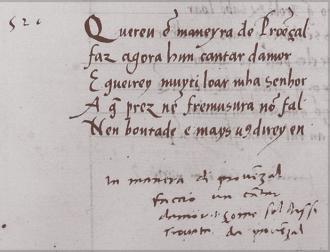 520
Quereu ẽ maneyra de Proẽçal
faz agora hun cantar damor
E queirey muyti loar mha senhor
A q̃ prez nẽ fremusura nõ fal
Nen bontade e mays u9direy en
In manera di provẽzal
faccio un cãtar
damor
trovata da provẽzal